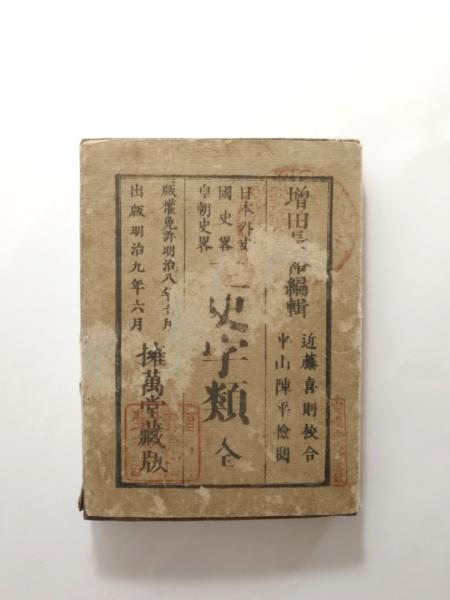 増田長 編輯
近藤喜則校合
平山陳平檢閲
日本外史
國史畧
皇朝史畧
史字類 全
版權免許明治八年十月
出版明治九年六月
擁萬堂藏版